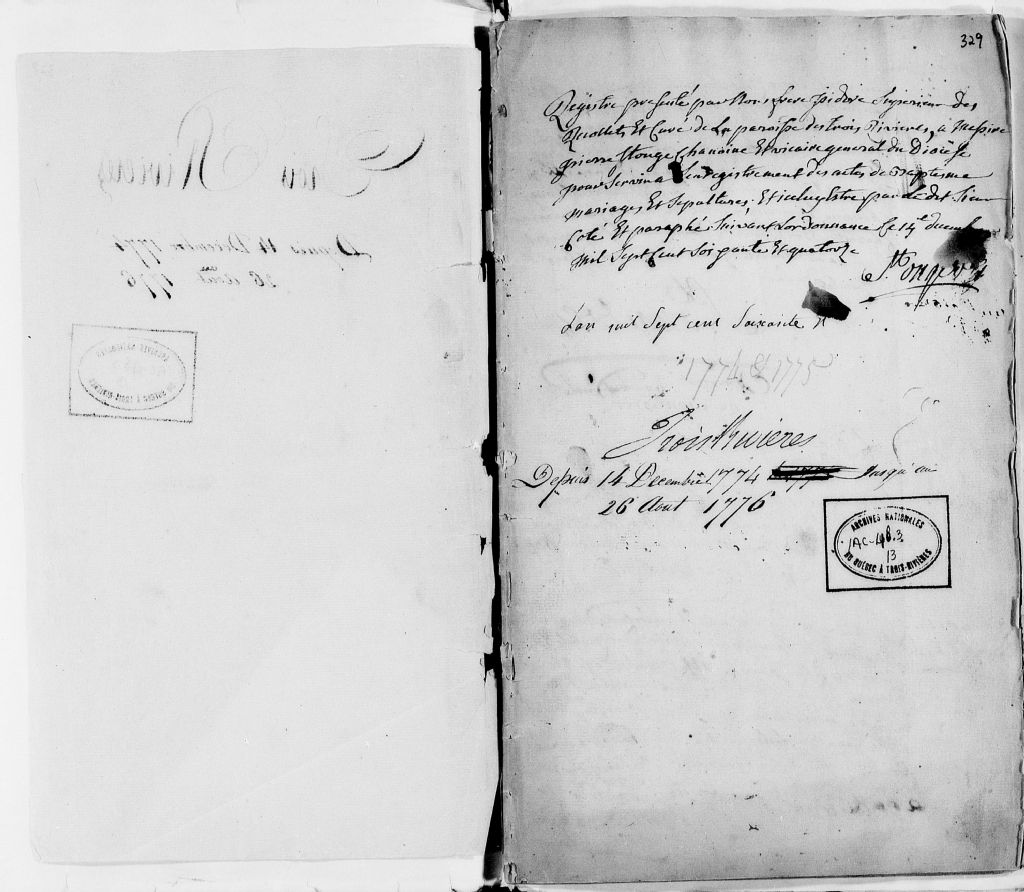 Trois Rivieres
Depuis 14 Decembre 1774
26 Aout 1776
329
Registre presenté par Nous frere isidore Superieur des
Recollets Et Curé de La paroisse des trois Rivieres, a Messire
pierre St onge Chanoine Et vicaire general du Diocese
pour Servir a L'enregistrement des actes de Baptesme
mariages Et Sepultures. Et icelui par Le dit Sieur
Coté Et paraphé Suivant Lordonnance Le 14e decembre
Mil Sept Cent Soixante Et quatorze
St onge
Lan mil Sept cent Soixante
1774 & 1775
Trois Rivieres
Depuis 14 Decembre 1774 Jusqu'au
26 Aout 1776
ARCHIVES NATIONALES
1AC-48.3
13
DU QUÉBEC À TROIS-RIVIÈRES